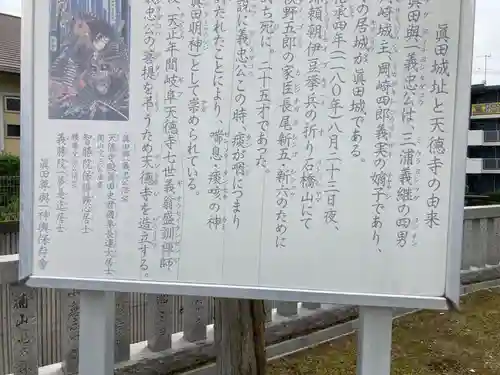 眞田城址と天徳寺の由来
眞田與一義忠公は、三浦義継の四男
崎城主岡崎四郎義実の嫡子であり、
の居城が眞田城である。
治承四年(一一八〇年)八月二十三日夜、
源頼朝伊豆挙兵の折り石橋山にて
俣野五郎の家臣長尾新五・新六のために
討ち死に。二十五才であった。
説に義忠公この時、痰が喉につまり
討たれたことにより、喘息・痰咳の神
(眞田明神)として崇められている。
天正年間岐阜天徳寺七世義翁盛訓禅師
忠公の菩提を弔うため天徳寺を造立する。
天徳寺
智勝院
義勝院
眞田與一神輿保存会
浦山